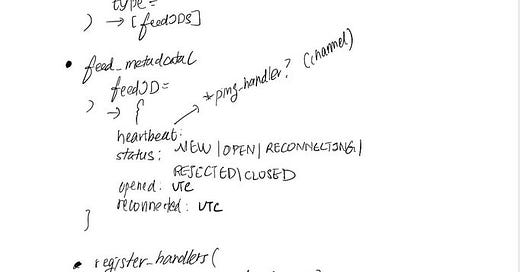 type =
) → [feedIDs]
• feed_metadata(
feedID =
) → {
*ping_handler? (channel)
heartbeat:
status: NEW | OPEN | RECONNECTING |
REJECTED | CLOSED
opened: UTC
reconnected: UTC
}
• register_handlers(